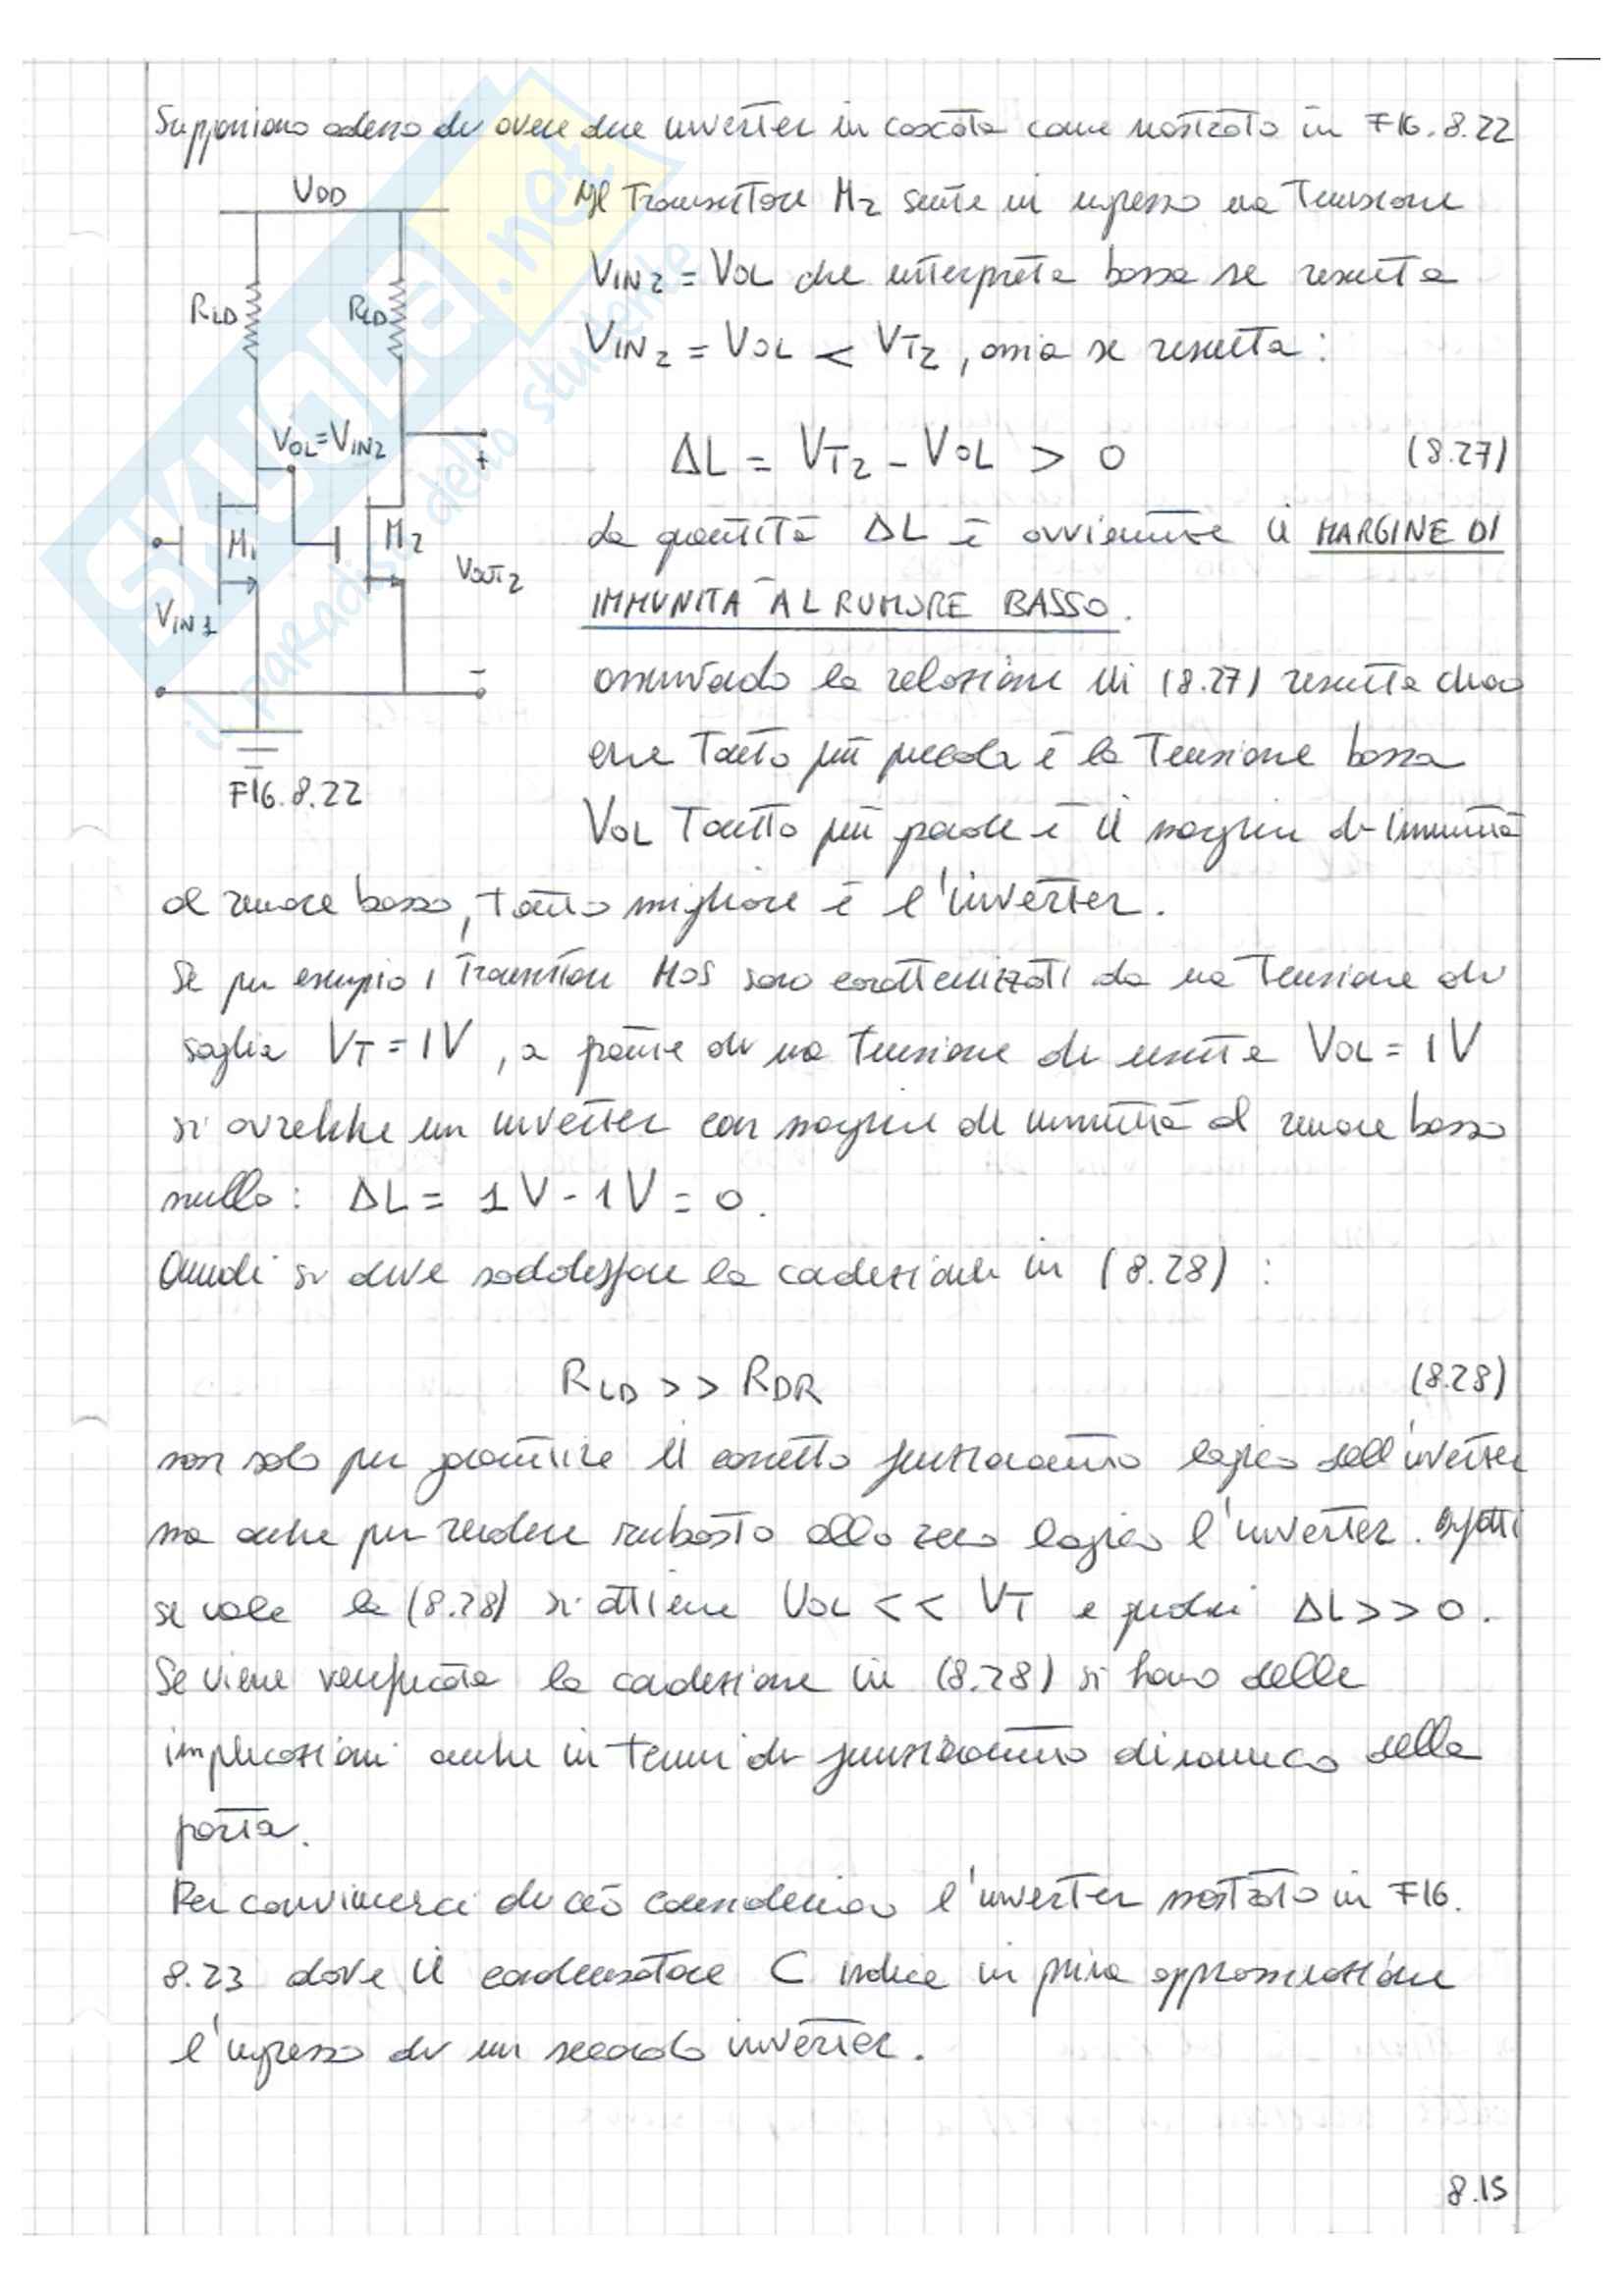 Supponiamo adesso di avere due inverter in cascata come mostrato in FIG. 8.22
VDD
Il Transistore M2 sente in ingresso una Tensione
VIN2 = VOL che interpreta bassa se risulta
RLD
RLD
VIN2 = VOL < VT2, ossia se risulta:
VOL=VIN2
+
ΔL = VT2 - VOL > 0 (8.27)
M1
M2
La quantità ΔL è ovviamente il MARGINE DI
VOUT2
IMMUNITÀ AL RUMORE BASSO.
VIN1
-
osservando la relazione in (8.27) risulta chiaro
che Tanto più piccola è la Tensione bassa
FIG. 8.22
VOL Tanto più grande è il margine di immunità
al rumore basso, tanto migliore è l'inverter.
Se per esempio i Transistori MOS sono caratterizzati da una Tensione di
soglia VT = 1V, a fronte di una tensione di uscita VOL = 1V
si avrebbe un inverter con margine di immunità al rumore basso
nullo: ΔL = 1V - 1V = 0.
Quindi si deve soddisfare la condizione in (8.28):
RLD >> RDR (8.28)
non solo per garantire il corretto funzionamento logico dell'inverter
ma anche per rendere robusto allo zero logico l'inverter. Infatti
se vale la (8.28) si ottiene VOL << VT e quindi ΔL >> 0.
Se viene verificata la condizione in (8.28) si hanno delle
implicazioni anche in termini di funzionamento dinamico della
porta.
Per convincerci di ciò consideriamo l'inverter mostrato in FIG.
8.23 dove il condensatore C indica in prima approssimazione
l'ingresso di un secondo inverter.
8.15
SKUOLA.net
il paradiso dello studente